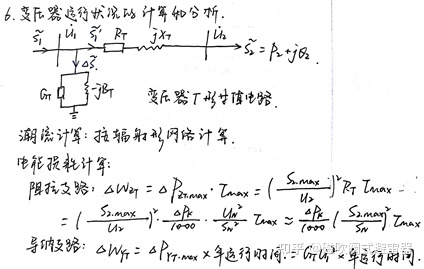 6. 变压器运行状况的计算和分析.
S̃₁ U̇₁ S̃₁' R_T jX_T U̇₂ S̃₂ = P₂ + jQ₂
ΔS̃
G_T -jB_T 变压器T形等值电路.
潮流计算: 按辐射形网络计算.
电能损耗计算:
阻抗支路: ΔW_ZT = ΔP_ZT.max · Tmax = (S₂.max / U₂)² R_T Tmax
= (S₂.max / U₂)² · ΔP_k / 1000 · U_N² / S_N² Tmax ≈ ΔP_k / 1000 (S₂.max / S_N)² Tmax
导纳支路: ΔW_YT = ΔP_YT.max × 年运行时间. = G_T U₁² × 年运行时间.
知乎